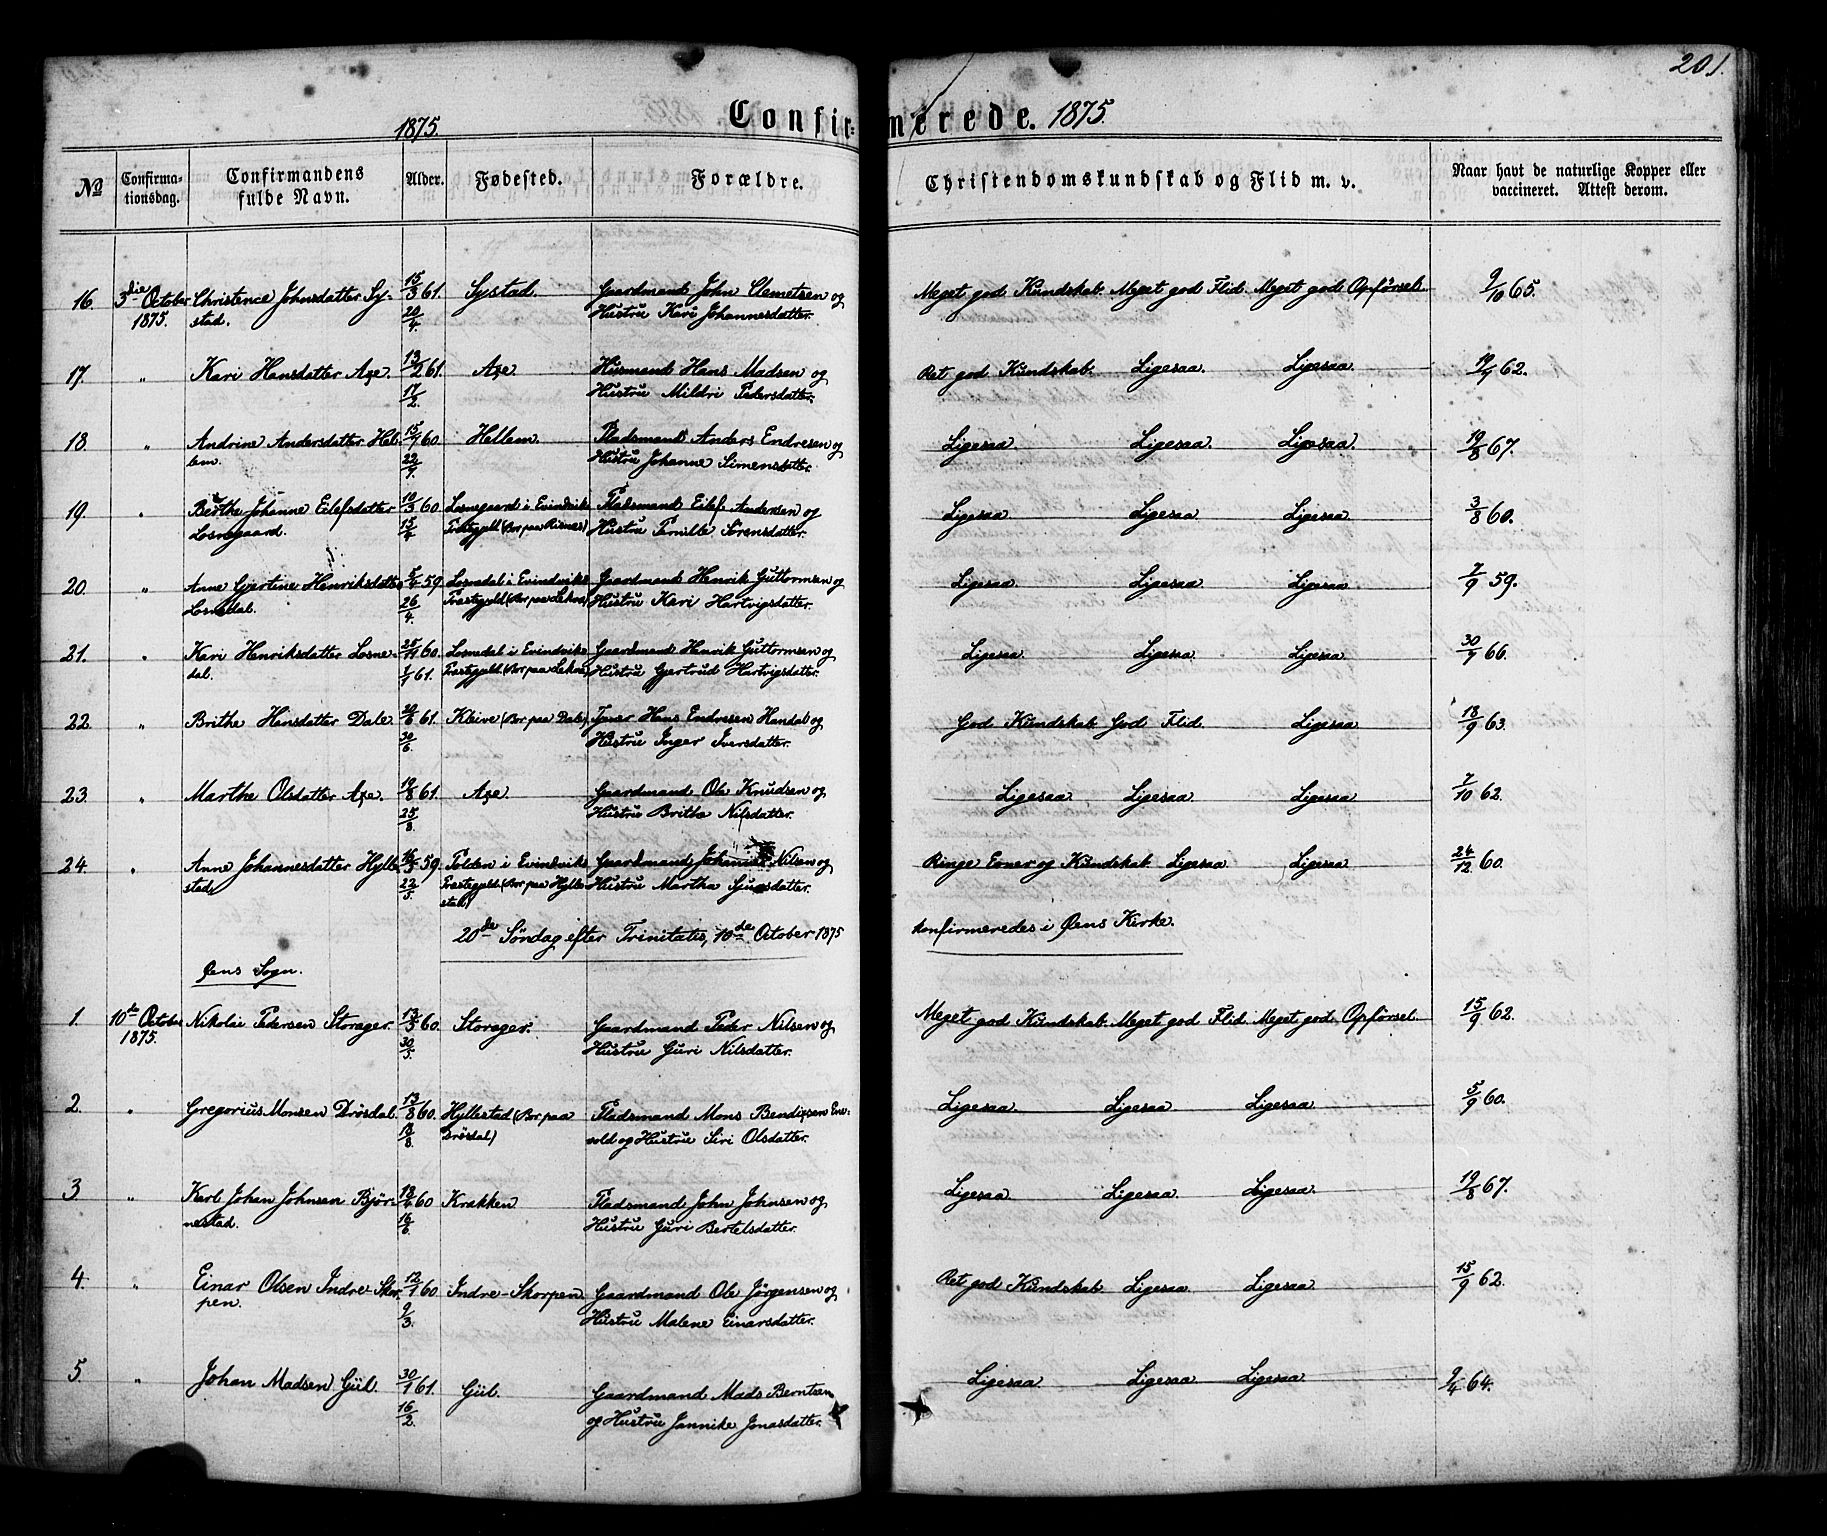 201.
1875. Confir= merede. 1875.
No Confirma- Confirmandens Alder. Fødested. Forældre. Christendomskundskab og Flid m. v. Naar havt de naturlige Kopper eller
tionsdag. fulde Navn. vaccineret. Attest derom.
16. 3die October Christence Johnsdatter Sy- 15/3 61. Systad. Gaardmand John Clemetsen og Meget god Kundskab. Meget god Flid. Meget god Opførsel. 9/10 65.
1875. stad. 20/4. Hustru Kari Johannesdatter.
17. " Kari Hansdatter Aze. 13/2 61. Aze Husmand Hans Madsen og Ret god Kundskab. Ligesaa. Ligesaa. 19/9 62.
17/2. Hustru Mildri Pedersdatter.
18. " Andrine Andersdatter Hel- 15/9 60. Hellem. Pladsmand Anders Endresen og Ligesaa. Ligesaa. Ligesaa. 19/8 67.
lem. 22/9. Hustru Johanne Simensdatter.
19. " Berthe Johanne Eilefsdatter 10/3 60. Losnegaard i Evindviks Pladsmand Eilef Andersen og Ligesaa. Ligesaa. Ligesaa. 3/8 60.
Losnegaard. 15/4 Præstegjeld (Bor paa Risnes) Hustru Pernille Sørensdatter.
20. " Anne Gjertine Henriksdatter 5/4 59. Losnedal i Evindviks Gaardmand Henrik Guttormsen og Ligesaa. Ligesaa. Ligesaa. 7/9 59.
Losnedal. 26/4. Præstegjeld (Bor paa Lekva) Hustru Kari Hartvigsdatter.
21. " Kari Henriksdatter Losne- 25/11 60. Losnedal i Evindviks Gaardmand Henrik Guttormsen og Ligesaa. Ligesaa. Ligesaa. 30/9 66.
dal. 1/1 61. Præstegjeld (Bor paa Lekva) Hustru Gjertrud Hartvigsdatter.
22. " Brithe Hansdatter Dale. 20/6 61. Kleive (Bor paa Dale) Hans Endresen og God Kundskab. God Flid. Ligesaa. 18/9 63.
30/6. Hustru Inger Iversdatter.
23. " Marthe Olsdatter Aze. 19/8 61. Aze. Gaardmand Ole Knudsen og Ligesaa. Ligesaa. Ligesaa. 7/10 62.
25/8. Hustru Brithe Nilsdatter.
24. " Anne Johannesdatter Hylle- 59. i Evindviks Gaardmand Johannes Nilsen og Ringe Evner og Kundskab. Ligesaa. Ligesaa. 24/12 60.
stad. 22/5. Præstegjeld (Bor paa Hylle- Hustru Martha Sjursdatter.
stad)
20de Søndag efter Trinitatis, 10de October 1875 konfirmeredes i Øens Kirke.
Øens Sogn.
1. 10de October Nikolai Pedersen Storager. 13/3 60. Storager. Gaardmand Peder Nilsen og Meget god Kundskab. Meget god Flid. Meget god Opførsel. 15/9 62.
1875. 30/5. Hustru Guri Nilsdatter.
2. " Gregorius Monsen Drøsdal. 13/8 60. Hyllestad (Bor paa Pladsmand Mons Bendixsen En- Ligesaa. Ligesaa. Ligesaa. 5/9 60.
Drøsdal) vold og Hustru Siri Olsdatter.
3 " Karl Johan Johnsen Bjør- 60 Krakken Pladsmand John Johnsen og Ligesaa. Ligesaa. Ligesaa. 19/8 67.
nestad. 16/6. Hustru Guri Bertelsdatter.
4 " Einar Olsen Indre-Skor- 12/1 60. Indre-Skorpen. Gaardmand Ole Jørgensen og Ret god Kundskab. Ligesaa. Ligesaa. 15/9 62.
pen. 9/3. Hustru Malene Einarsdatter.
5. " Johan Madsen Güil. 30/1 61. Güil. Gaardmand Mads Berntsen Ligesaa. Ligesaa. Ligesaa. 9/4 64.
16/2. og Hustru Jannike Jonasdatter.